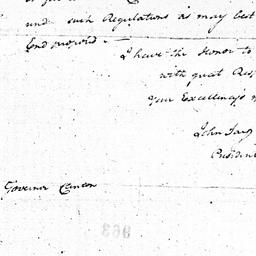 und such Regulations as may best
End proposed. —
I have the Honor to
with great Res
Your Excellency's
John Jay
Presiden
Governor Clinton
963